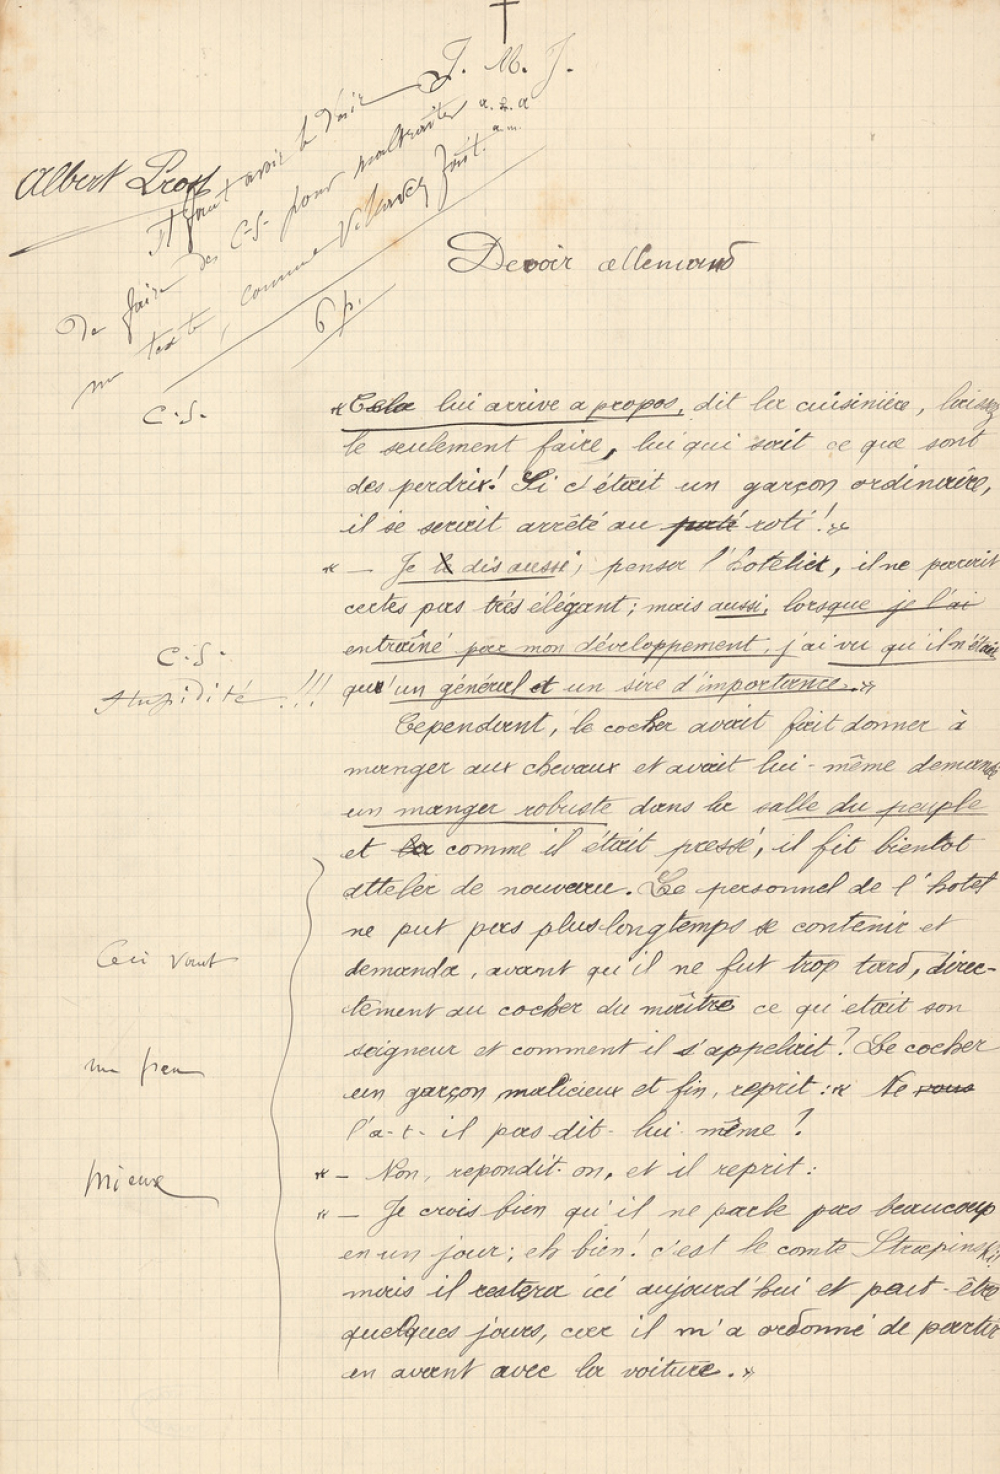 J. M. J.
Albert Prost
Il faut avoir l
de faire des C-S- pour maltraiter
un texte, comme fait.
6 p.
Devoir allemand
C.S.
«Cela lui arrive a propos, dit la cuisinière, laissez
le seulement faire, lui qui sait ce que sont
des perdrix! Si c'était un garçon ordinaire,
il se serait arrêté au paté roti!»
«— Je le dis aussi, pensa l'hotelier, il ne parait
certes pas très élégant; mais aussi, lorsque je l'ai
entraîné par mon développement, j'ai vu qu'il n'était
C.S.
stupidité !!!
qu'un général et un sire d'importance.»
Cependant, le cocher avait fait donner à
manger aux chevaux et avait lui-même demandé
un manger robuste dans la salle du peuple
et la comme il était pressé, il fit bientot
atteler de nouveau. Le personnel de l'hotel
ne put pas plus longtemps se contenir et
Ceci vaut
demanda, avant qu'il ne fut trop tard, direc-
tement au cocher du maître ce qu'etait son
seigneur et comment il s'appelait? Le cocher
un peu
un garçon malicieux et fin, reprit: « Ne vous
l'a-t-il pas dit lui même?
mieux
«— Non, repondit-on, et il reprit:
«— Je crois bien qu'il ne parle pas beaucoup
en un jour; eh bien! c'est le comte Strapinski,
mais il restera ici aujourd'hui et peut-être
quelques jours, car il m'a ordonné de partir
en avant avec la voiture.»